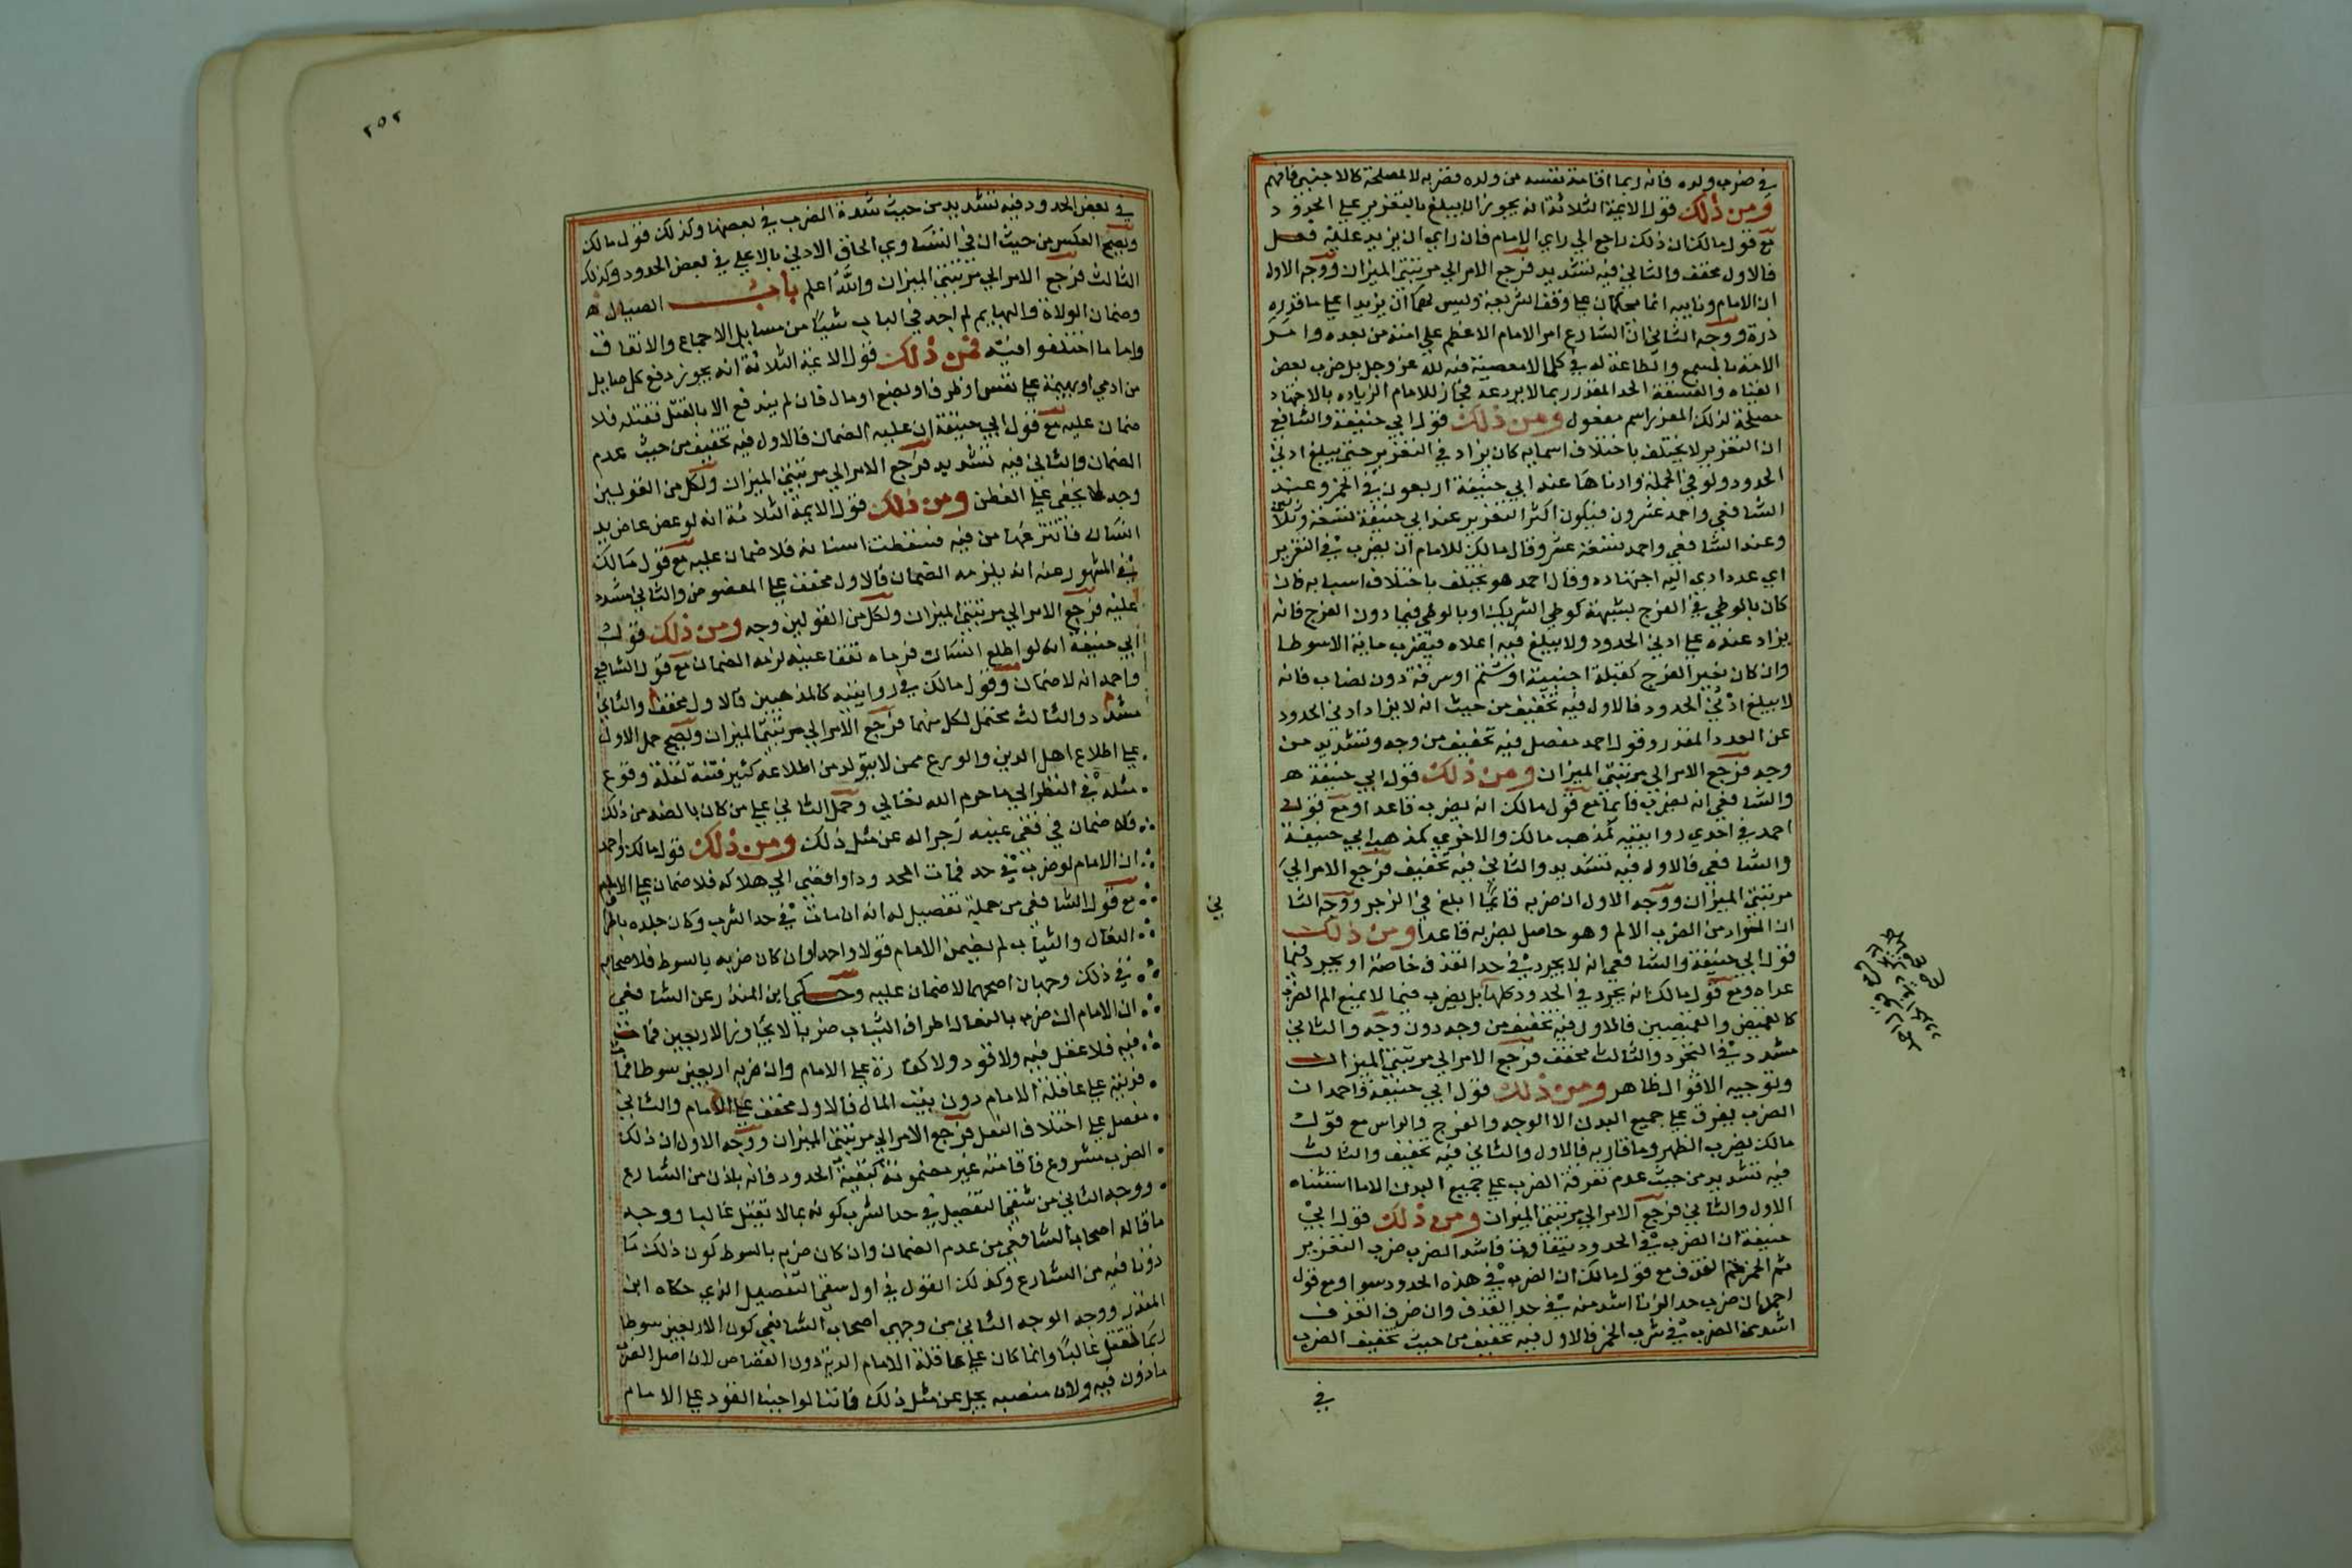 في ضرب ولده فانه ربما اقامة نفسه من ولده فضربه لا لمصلحة كالاجنبي فافهم
ومن ذلك قول الايمة الثلاثة انه يجوز ان يبلغ بالتعزير علي الحدود
مع قول مالك ان ذلك راجع الي راي الامام فان راي ان يزيد عليه فعل
فالاول مخفف والثاني فيه تشديد فرجع الامر الي مرتبتي الميزان ووجه الاول
ان الامام ونايبه انما يحكمان علي وفق الشريعة وليس لهما ان يزيدا علي ما قدره
ذرة ووجه الثاني ان الشارع امر الامام الاعظم علي امته من بعده وامر
الامة بالسمع والطاعة له في كل ما لا معصية فيه لله عز وجل بل ضرب بعض
العتاه والفسقة الحد المقدر ربما لا يردعه فجاز للامام الزياده بالاجتهاد
مصلحة لذلك المعزر اسم مفعول ومن ذلك قول ابي حنيفة والشافعي
ان التعزير لا يختلف باختلاف اسبابه كان يزاد في التعزير حتي يبلغ ادني
الحدود ولو في الجملة وادناها عند ابي حنيفة اربعون في الخمر وعند
الشافعي واحمد عشرون فيكون اكثر التعزير عند ابي حنيفة تسعة وثلاثين
وعند الشافعي واحمد تسعة عشر وقال مالك للامام ان يضرب في التعزير
اي عدد ادي اليه اجتهاده وقال احمد هو يختلف باختلاف اسبابه فان
كان بالوطي في الفرج بشبهة كوطي الشريك او بالوطي فيما دون الفرج فانه
يزاد عنده علي ادني الحدود ولا يبلغ فيه اعلاه فيضرب ماية الا سوطا
وان كان بغير الفرج كقبلة اجنبية او شتم او سرقة دون نصاب فانه
لا يبلغ ادني الحدود فالاول فيه تخفيف من حيث انه لا يزاد ادني الحدود
عن العدد المقدر وقول احمد مفصل فيه تخفيف من وجه وتشديد من
وجه فرجع الامر الي مرتبتي الميزان ومن ذلك قول ابي حنيفة
والشافعي انه يضرب قايما مع قول مالك انه يضرب قاعدا ومع قول
احمد في احدي روايتيه كمذهب مالك والاخري كمذهب ابي حنيفة
والشافعي فالاول فيه تشديد والثاني فيه تخفيف فرجع الامر الي
مرتبتي الميزان ووجه الاول ان ضربه قايما ابلغ في الزجر ووجه الثا
ان المراد من الضرب الالم وهو حاصل بضربه قاعدا ومن ذلك
قول ابي حنيفة والشافعي انه لا يجرد في حد القذف خاصة او يجرد فيما
عداه ومع قول مالك انه يجرد في الحدود كلها بل يضرب فيما لا يمنع الم الضرب
كالقميص والقميصين فالاول فيه تخفيف من وجه دون وجه والثاني
مشدد في التجرد والثالث مخفف فرجع الامر الي مرتبتي الميزان
وتوجيه الاقوال ظاهر ومن ذلك قول ابي حنيفة واحمد ان
الضرب يفرق علي جميع البدن الا الوجه والفرج والراس مع قول
مالك يضرب الظهر وما قاربه فالاول والثاني فيه تخفيف والثالث
فيه تشديد من حيث عدم تفرقة الضرب علي جميع البدن الا ما استثناه
الاول والثاني فرجع الامر الي مرتبتي الميزان ومن ذلك قول ابي
حنيفة ان الضرب في الحدود يتفاوت فاشد الضرب ضرب التعزير
ثم الخمر ثم القذف مع قول مالك ان الضرب في هذه الحدود سوا ومع قول
احمد ان ضرب حد الزنا اشد منه في حد القذف وان ضرب القذف
اشد من الضرب في شرب الخمر فالاول فيه تخفيف من حيث تخفيف الضرب
في
٢٥٢
في بعض الحدود فيه تشديد من حيث شدة الضرب في بعضها وكذلك قول مالك
ويصح العكس من حيث ان في التساوي الحاق الادني بالاعلي في بعض الحدود وكذلك
الثالث فرجع الامر الي مرتبتي الميزان والله اعلم باب الصيال
وضمان الولاة والبهايم لم اجد في الباب شيا من مسايل الاجماع والاتفاق
واما ما اختلفوا فيه فمن ذلك قول الايمة الثلاثة انه يجوز دفع كل صايل
من ادمي او بهيمة علي نفس او طرف او بضع او مال فان لم يندفع الا بالقتل فقتله فلا
ضمان عليه مع قول ابي حنيفة ان عليه الضمان فالاول فيه تخفيف من حيث عدم
الضمان والثاني فيه تشديد فرجع الامر الي مرتبتي الميزان ولكل من القولين
وجه لا يخفي علي الفطن ومن ذلك قول الايمة الثلاثة انه لو عض عاض يد
انسان فانتزعها من فيه فسقطت اسنانه فلا ضمان عليه مع قول مالك
في المشهور عنه انه يلزمه الضمان فالاول مخفف علي المعضوض والثاني مشدد
عليه فرجع الامر الي مرتبتي الميزان ولكل من القولين وجه ومن ذلك قول
ابي حنيفة انه لو اطلع انسان فرماه ففقا عينه لزمه الضمان مع قول الشافعي
واحمد انه لا ضمان وقول مالك في روايتيه كالمذهبين فالاول مخفف والثاني
مشدد والثالث محتمل لكل منهما فرجع الامر الي مرتبتي الميزان ويصح حمل الاول
علي اطلاع اهل الدين والورع ممن لا يتولد من اطلاعه كثير فتنة لقلة وقوع
مثله في النظر الي ما حرم الله تعالي وحمل الثاني علي من كان بالضد من ذلك
فلا ضمان في فقي عينه زجرا له عن مثل ذلك ومن ذلك قول مالك واحمد
ان الامام لو ضرب في حد فمات المحدود او افضي الي هلاكه فلا ضمان علي الامام
مع قول الشافعي من جملة تفصيل له انه ان مات في حد الشرب وكان جلده باطراف
النعال والثياب لم يضمن الامام قولا واحدا وان كان ضربه بالسوط فلاصحابه
في ذلك وجهان اصحهما لا ضمان عليه وحكي ابن المنذر عن الشافعي
ان الامام ان ضرب بالنعال واطراف الثياب ضربا لا يجاوز الاربعين فمات
فيه فلا عقل فيه ولا قود ولا كفارة علي الامام وان ضربه اربعين سوطا فمات
فديته علي عاقلة الامام دون بيت المال فالاول مخفف علي الامام والثاني
مفصل علي اختلاف النقل فرجع الامر الي مرتبتي الميزان ووجه الاول ان ذلك
الضرب مشروع فاقامته غير مضمونة كبقية الحدود فانه باذن من الشارع
ووجه الثاني من شقي التفصيل في حد الشرب كونه بما لا يقتل غالبا ووجه
ما قاله اصحاب الشافعي من عدم الضمان وان كان ضربه بالسوط كون ذلك ما
ذونا فيه من الشارع وكذلك القول في اول شقي التفصيل الذي حكاه ابن
المنذر ووجه الوجه الثاني من وجهي اصحاب الشافعي كون الاربعين سوطا
ربما تقتل غالبا وانما كان علي عاقلة الامام الدية دون القصاص لان اصل الضرب
ماذون فيه ولان منصبه يجل عن مثل ذلك فاننا لو اوجبنا القود علي الامام